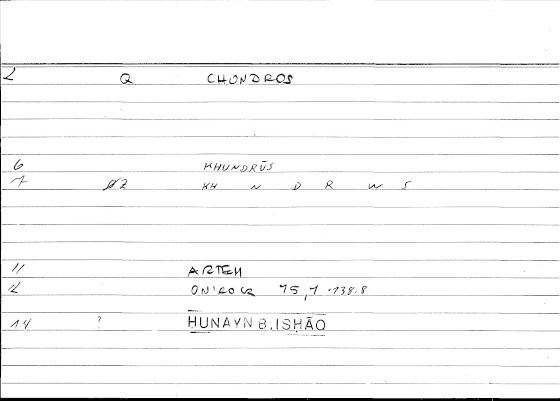 2 Q CHONDROS
6 KHUNDRŪS
7 02 KH N D R W S
11 ARTEM
12 ONIROCR 75,7 138.8
14 ? HUNAYN B. ISḤĀQ